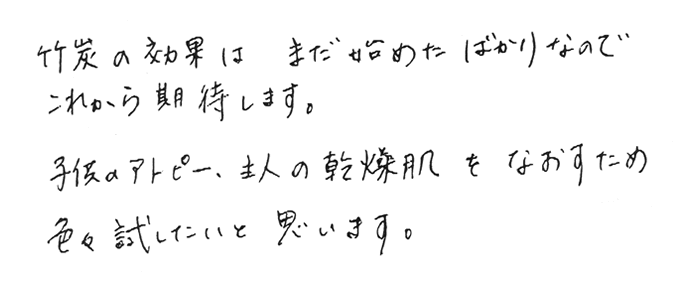 竹炭の効果は まだ始めたばかりなので
これから期待します。
子供のアトピー、主人の乾燥肌をなおすため
色々試したいと思います。